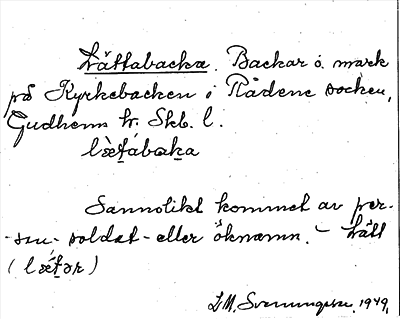 Lättabacka. Backar o. mark
på Kyrkebacken i Rådene socken,
Gudhems hr. Skb. l.
lætabaka
Sannolikt kommet av per-
son- soldat- eller öknamn. – Lätt
(lætər)
1949.